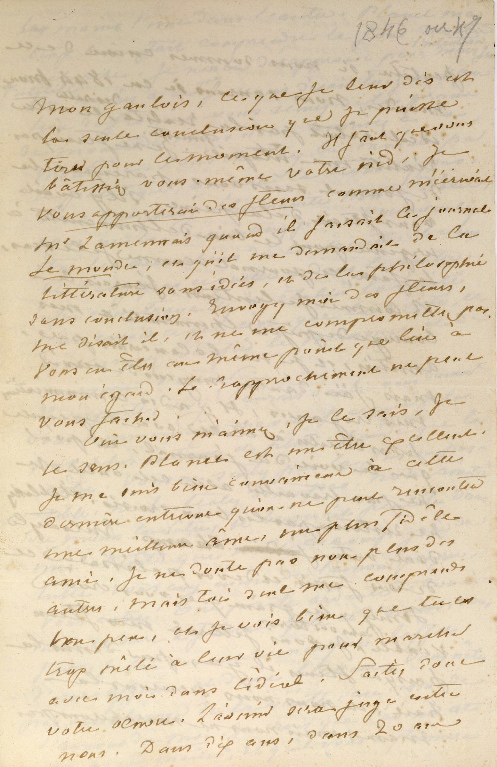 1846
mon gaulois, ce que je leur dis est
la seule conclusion que je puisse
tirer pour le moment. Il faut que vous
bâtissiez vous-même votre nid, je
vous apporterai des fleurs comme m'écrivait
Mr Lamennais quand il faisait le journal
Le monde, et qu'il me demandait de la
littérature sans idées, et de la philosophie
sans conclusion. Envoyez moi des fleurs,
me disait il, et ne me compromettez pas.
Vous en êtes au même point que lui à
mon égard. Le rapprochement ne peut
vous fâcher.
Oui vous m'aimez, je le sais, je
le sens. Planet est un être excellent.
Je me suis bien convaincue à cette
dernière entrevue qu'on ne peut rencontrer
une meilleure âme, un plus fidèle
ami. Je ne doute pas non plus des
autres, mais toi seul me comprends
un peu, et je vois bien que tu es
trop mêlé à leur vie pour marcher
avec moi dans l'idéal. Faites donc
votre œuvre. L'avenir sera juge entre
nous. Dans dix ans, dans 20 ans